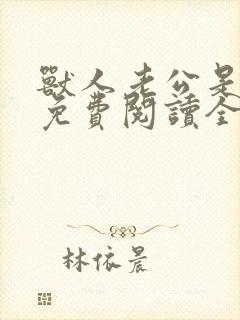 獸人老公是
免費閱讀全
林依晨